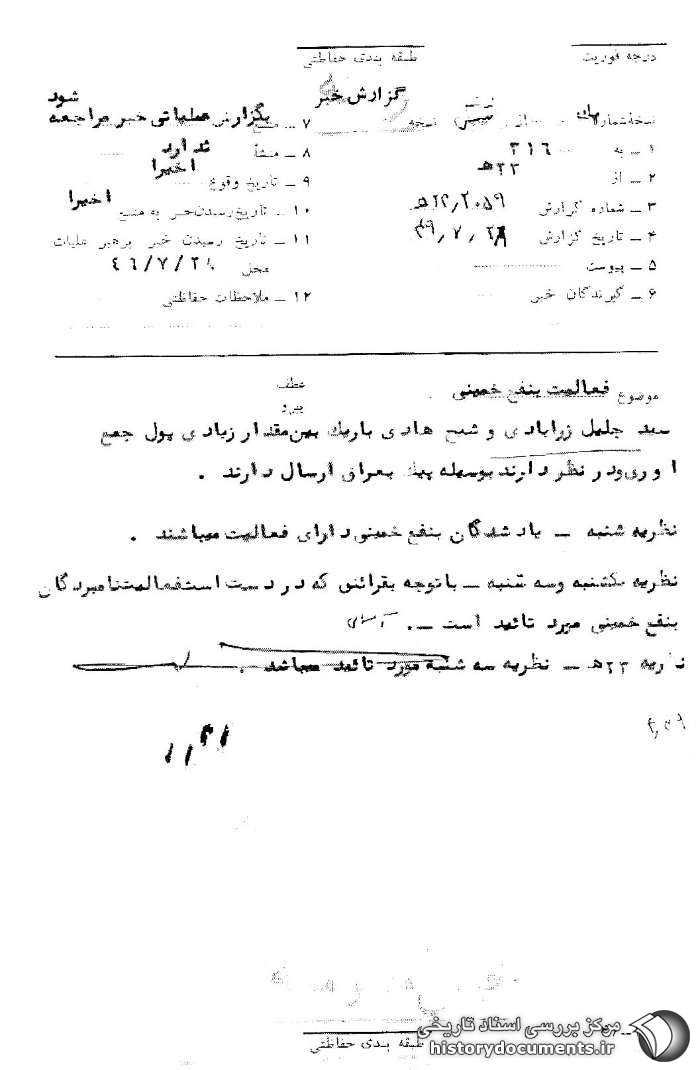 درجه فوریت
طبقه بندی حفاظتی
گزارش خبر
نسخه شماره یک از نسخه
۱ ـ به ۳۱۶
۲ ـ از ۲۳ﻫ
۳ ـ شماره گزارش
۴ ـ تاریخ گزارش
۵ ـ پیوست
۶ ـ گیرندگان خبر
۷ ـ منبع بگزارش عملیاتی خبر مراجعه شود
۸ ـ منشأ ندارد
۹ ـ تاریخ وقوع اخیرا
۱۰ ـ تاریخ رسیدن خبر به منبع اخیرا
۱۱ ـ تاریخ رسیدن خبر برهبر عملیات
محل
۱۲ ـ ملاحظات حفاظتی
موضوع فعالیت بنفع خمینی
عطف
پیرو
سید جلیل زرابادی و شیخ هادی باریک بین مقدار زیادی پول جمع
اوری و در نظر دارند بوسیله پیک بعراق ارسال دارند .
نظریه شنبه ـ یاد شدگان بنفع خمینی دارای فعالیت میباشند .
نظریه یکشنبه وسه شنبه ـ باتوجه بقرائنی که در دست است فعالیت نامبردگان
بنفع خمینی مورد تائید است ـ.
نظریه ۲۳ﻫ ـ نظریه سه شنبه مورد تائید میباشد .
مرکز بررسی اسناد تاریخی
historydocuments.ir
طبقه بندی حفاظتی